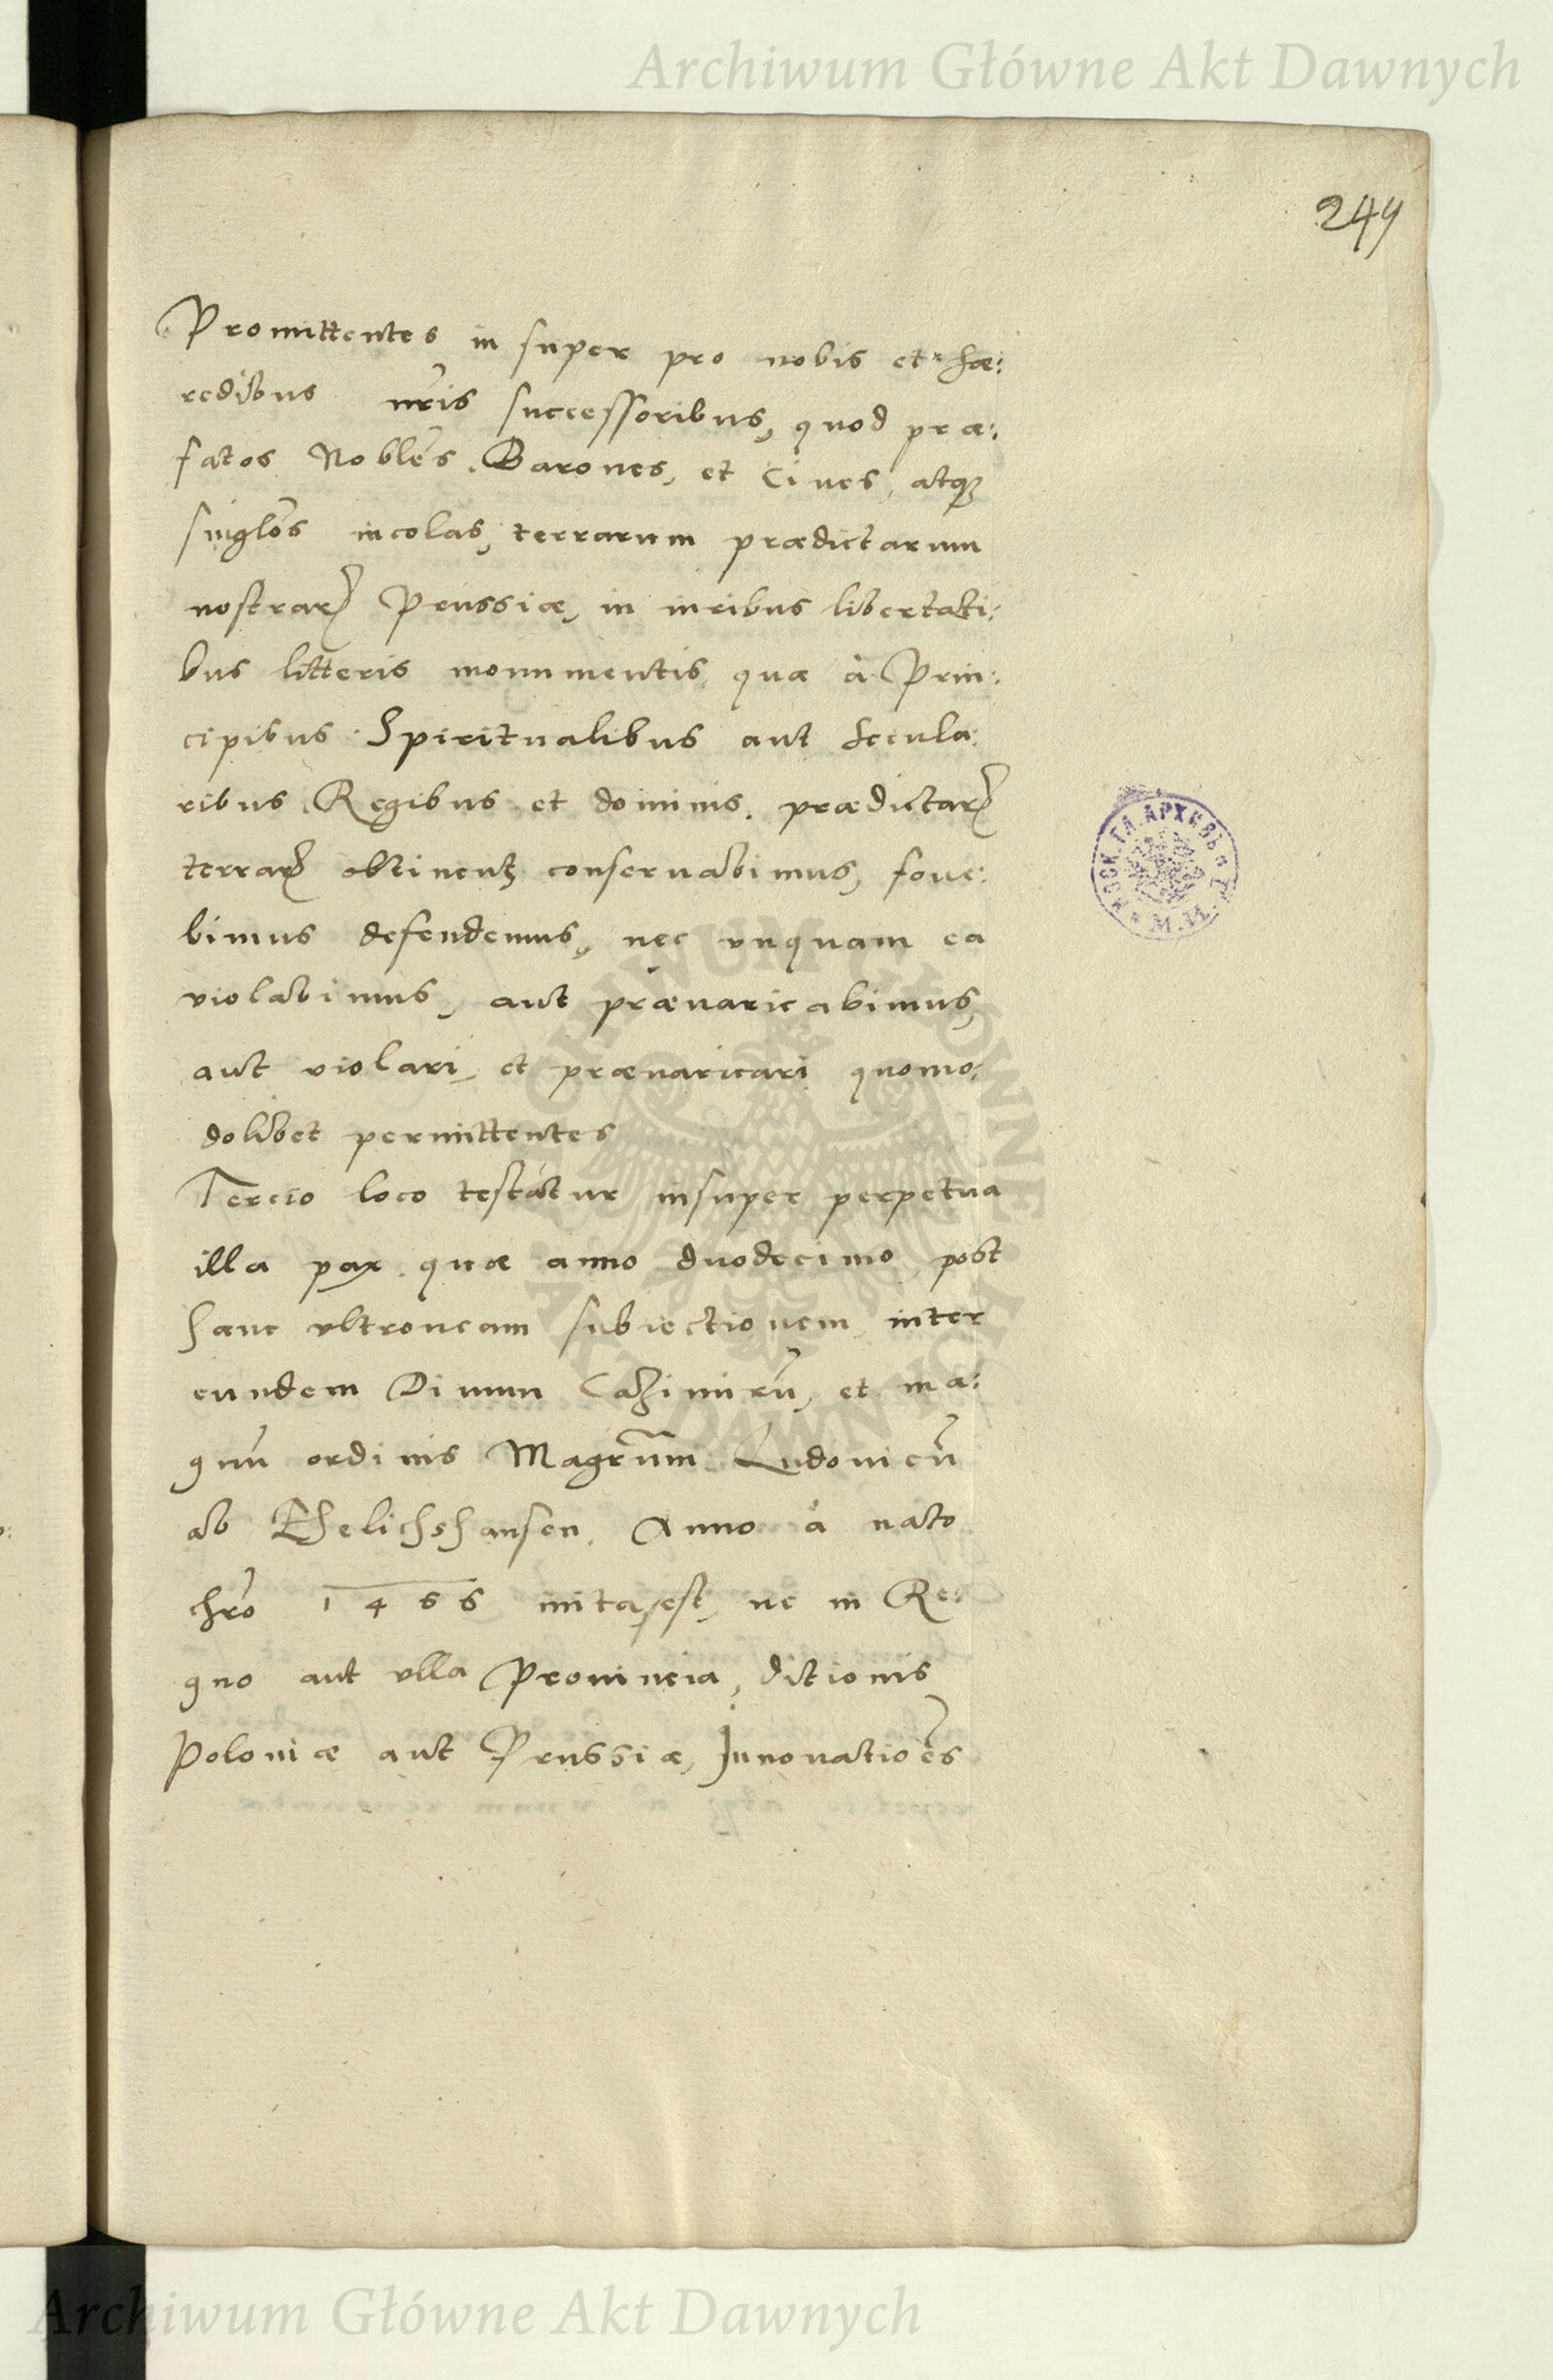 Archiwum Główne Akt Dawnych
249
Promittentes in super pro nobis et hæ:
redibus nr̃is successoribus, quod præ:
fatos Nobles̃. Barones, et Ciues, atqȝ
singlos̃ incolas, terrarum prædictarum
nostrarꝝ Prussiæ, in iuribus libertati:
bus litteris monumentis quæ à Prin:
cipibus Spiritualibus aut secula:
ribus Regibus et dominis. prædictarꝝ
terrarꝝ obtinentȝ conseruabimus, foue:
bimus defendemus, nec vnquam ea
violabimus, aut præuaricabimus,
aut violari, et præuaricari quomo:
dolibet permittentes
Tercio loco testatur insuper perpetua
illa pax quæ anno duodecimo post
hanc vltroneam subiectionem inter
eundem Diuum Cazimirũ, et ma:
gnũ ordinis Magrũm Ludouicũ
ab Ehelichshausen. Anno à nato
chrõ 1466 inita est, ne in Re:
gno aut vlla Prouincia, ditionis
Poloniæ aut Prussiæ, Innouatioẽs
МОСК. ГЛ. АРХИВЪ
М. И.
ARCHIWUM GŁÓWNE
AKT DAWNYCH
Archiwum Główne Akt Dawnych